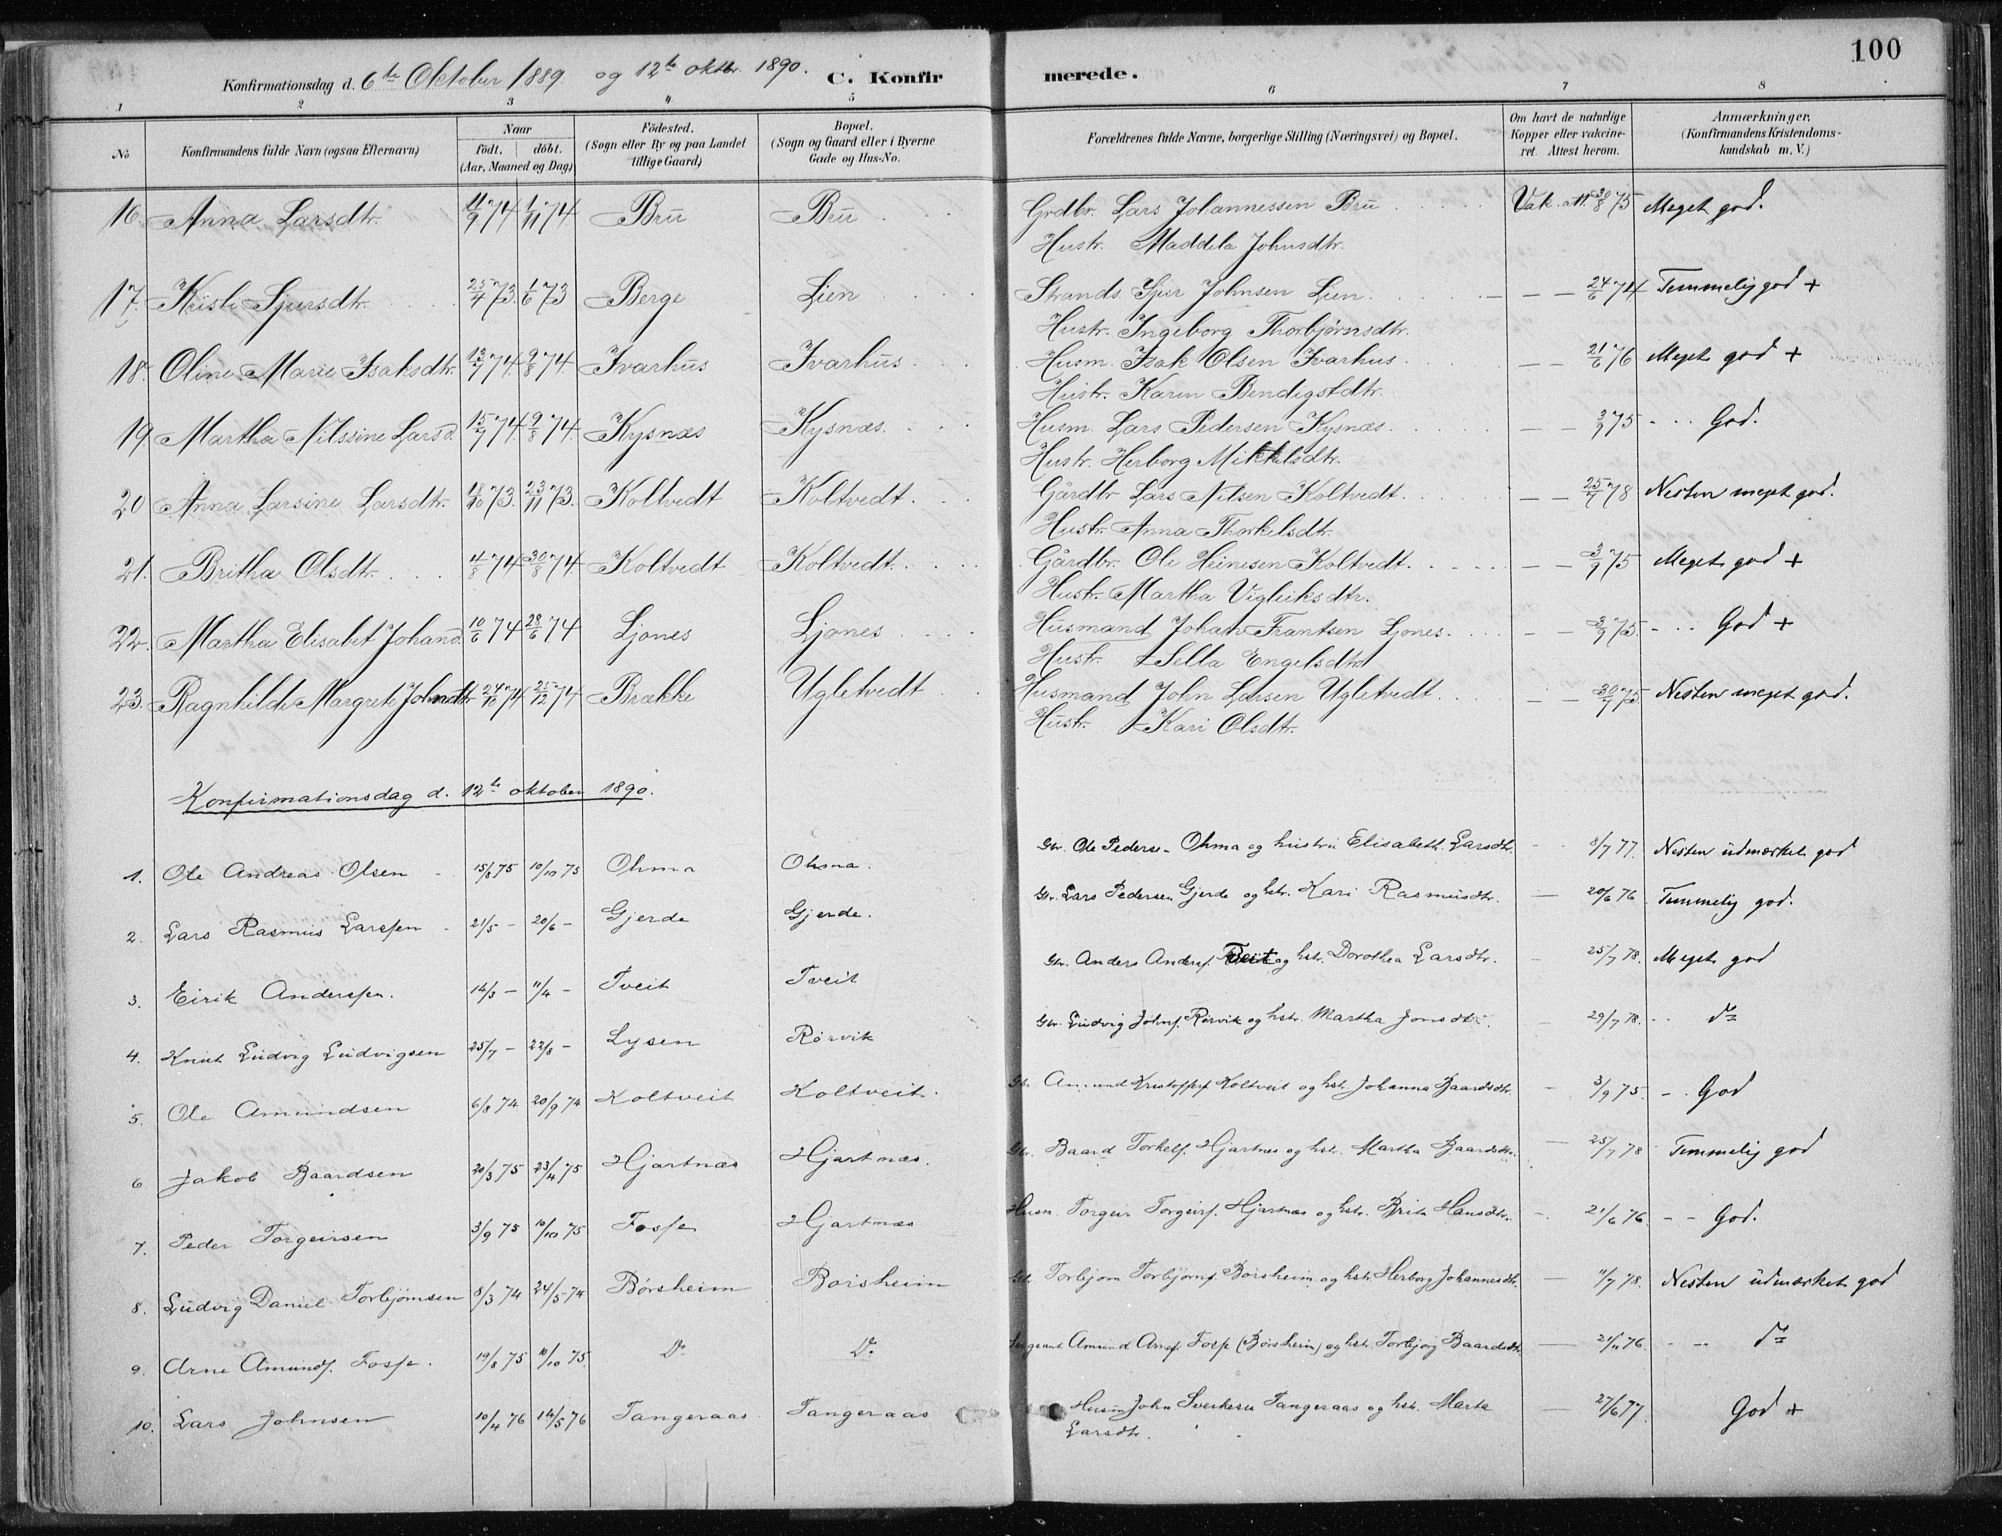 100
Konfirmationsdag d. 6te Oktober 1889. og 12te oktbr. 1890. C. Konfirmerede.
1 2 3 4 5 6 7 8
No Konfirmandens fulde Navn (ogsaa Efternavn) Naar födt. döbt. (Aar, Maaned og Dag) Födested. (Sogn eller By og paa Landet tillige Gaard) Bopæl. (Sogn og Gaard eller i Byerne Gade og Hus-No. Forældrenes fulde Navne, borgerlige Stilling (Næringsvei) og Bopæl. Om havt de naturlige Kopper eller vakcineret. Attest herom. Anmærkninger. (Konfirmandens Kristendomskundskab m. V.)
16. Anna Larsdtr. 11/9 74 1/11 74 Bru Bru Grdbr. Lars Johannessen Bru Vak. att. 3/8 75 Meget god.
Hustr. Maddela Johnsdtr.
17. Kristi Sjursdtr. 25/4 73. 1/6 73 Berge Lien Strands. Sjur Johnsen Lien — — 24/6 74 Temmelig god +
Hustr. Ingeborg Thorbjørnsdtr.
18. Oline Marie Isaksdtr. 13/7 74. 9/8 74. Ivarhus Ivarhus Husm. Isak Olsen Ivarhus — — 21/6 76 Meget god +
Hustr. Karin Bendigstdtr.
19. Martha Nilssine Larsd. 15/7 74. 9/8 74. Kysnæs Kysnæs. Husm. Lars Pedersen Kysnæs. — — 3/9 75 God.
Hustr. Herborg Mikkelsdtr.
20 Anna Larsine Larsdtr. 18/10 73. 23/11 73. Koltvedt Koltvedt. Gårdbr Lars Nilsen Koltvedt. — — 25/7 78 Nesten meget god.
Hustr. Anna Thorkelsdtr.
21. Britha Olsdtr. 4/8 74 30/8 74 Koltvedt Koltvedt. Gårdbr. Ole Heinesen Koltvedt. — — 3/9 75 Meget god +
Hustr. Martha Vigleiksdtr.
22. Martha Elisabet Johand. 10/6 74 28/6 74 Ljones Ljones Husmand Johan Frantsen Ljones. — — 3/9 75. God +
Hustr. Sella Engelsdtr
23. Ragnhilde Margrete Johndtr 24/10 74 25/12 74 Brække Ugletvedt Husmand John Larsen Ugletvedt — — 30/7 75. Nesten meget god.
Hustr. Kari Olsdtr.
Konfirmationsdag d. 12te oktober 1890.
1. Ole Andreas Olsen 15/8 75 10/10 75 Ohma Ohma. Gbr. Ole Pedersen Ohma og hustru Elisabeth Larsdtr. 8/7 77. Nesten udmerket god
2. Lars Rasmus Larssen 21/5 – 20/6 – Gjerde Gjerde. Gbr. Lars Pedersen Gjerde og hstr. Kari Rasmusdtr. — 20/6 76 Temmelig god.
3. Eirik Anderssen. 14/3 – 11/4 – Tveit Tveit Gbr. Anders Anders. Tveit og hstr. Dorothea Larsdtr. – 25/7 78. Meget god
4. Knut Ludvig Ludvigsen 25/7 – 22/8 – Lysen Rørvik Gbr. Ludvig Johns. Rørvik og hstr. Martha Jonsdtr. 29/7 78. do
5. Ole Amundsen 6/8 74 20/9 74 Koltveit Koltveit. Gbr. Amund Kristoffers. Koltveit og hstr. Johanna Baardsdtr. – 3/9 75. God
6 Jakob Baardsen 20/3 75 23/4 75 Hjartnæs Hjartnæs. Gbr. Baard Torkels. Hjartnes og hstr. Martha Baardsdtr. — 25/7 78 Temmelig god
7. Peder Torgeirsen 3/9 75 10/10 75 Fosse Hjartnæs Husm. Torgeir Torgeirs. Hjartnæs og hstr. Brita Hansdtr. – 21/6 76. God.
8. Ludvig Daniel Torbjørnsen 8/3 74 24/5 74 Børsheim Børsheim Gbr. Torbjørn Torbjørns. Børsheim og hstr. Herborg Johannesdtr. — 11/7 78. Nesten udmerket god
9. Arne Amunds. Fosse. 19/8 75 10/10 75. Do Do. Sergeant Amund Arnes. Fosse (Børsheim) og hstr. Torbjørg Baardsdtr. — 21/6 76. do
10. Lars Johnsen 10/4 76 14/5 76 Tangeraas Tangeraas Husm John Sverkesen Tangeraas og hstr. Marta — 27/6 77. God +
Larsdtr.